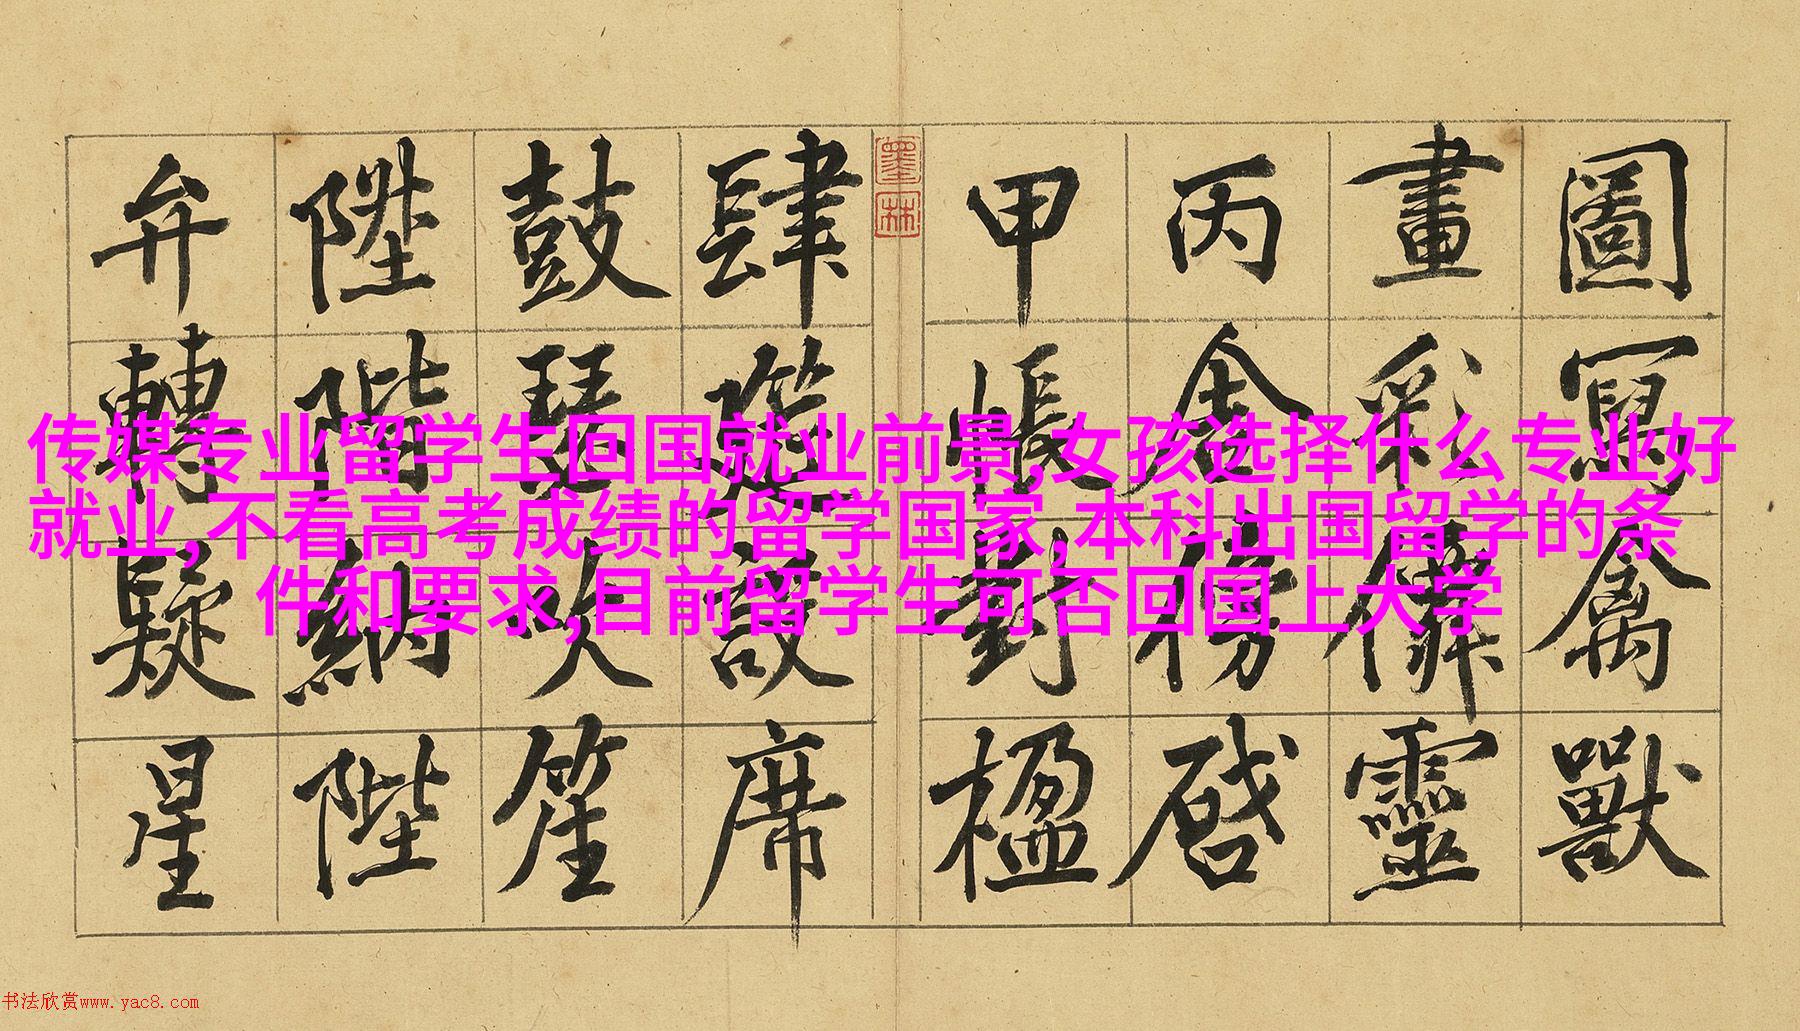 圖寫禽獸
畫彩僊靈
丙舍傍啓
甲帳對楹
肆筵設席
鼓瑟吹笙
陞階納陛
弁轉疑星
墨林
传媒专业留学生回国就业前景,女孩选择什么专业好
就业,不看高考成绩的留学国家,本科出国留学的条
件和要求,目前留学生可否回国上大学
书法欣赏www.yac8.com